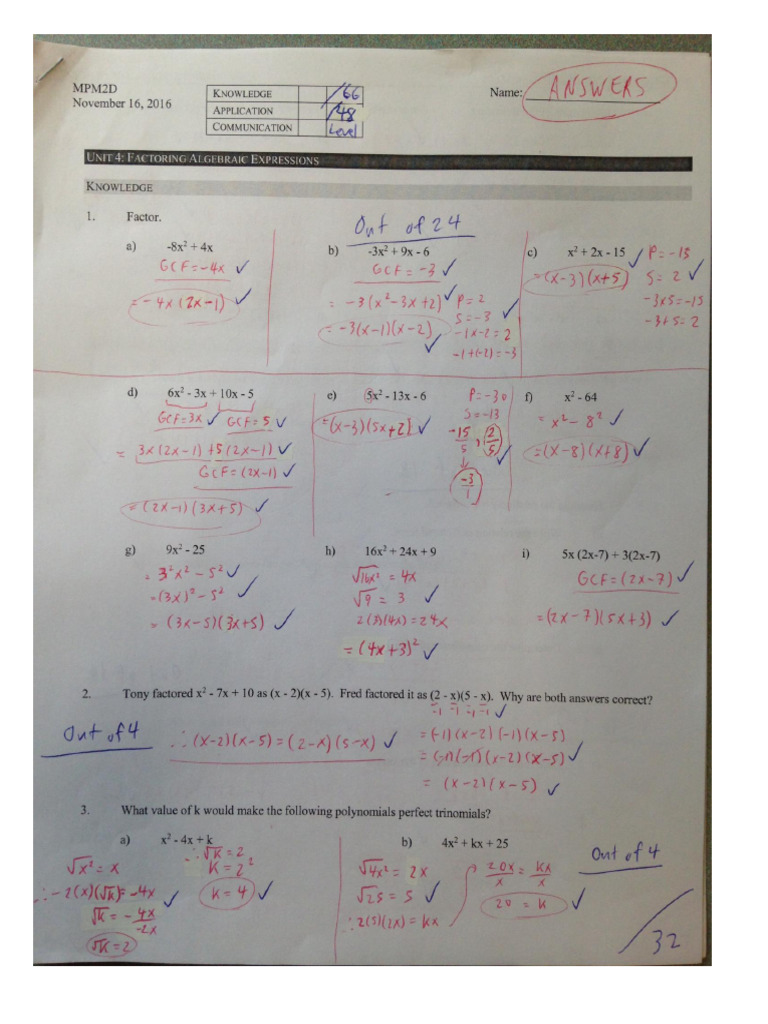 MPM2D
November 16, 2016
KNOWLEDGE /66
APPLICATION /48
COMMUNICATION Level
Name: ANSWERS
UNIT 4: FACTORING ALGEBRAIC EXPRESSIONS
KNOWLEDGE
1. Factor.
Out of 24
a) -8x² + 4x
GCF = -4x ✓
= -4x(2x-1) ✓
b) -3x² + 9x - 6
GCF = -3 ✓
= -3(x²-3x+2) ✓
= -3(x-1)(x-2) ✓
P = 2
S = -3 ✓
-1x-2 = 2
-1+(-2) = -3
c) x² + 2x - 15 ✓
= (x-3)(x+5)
P = -15
S = 2 ✓
-3x5 = -15
-3+5 = 2
d) 6x² - 3x + 10x - 5
GCF=3x ✓ GCF=5 ✓
= 3x(2x-1)+5(2x-1) ✓
GCF = (2x-1) ✓
= (2x-1)(3x+5) ✓
e) 5x² - 13x - 6
= (x-3)(5x+2) ✓
P = -30
S = -13
-15/5 , 2/5 ✓
↓
-3/1
f) x² - 64
= x² - 8² ✓
= (x-8)(x+8) ✓
g) 9x² - 25
= 3²x² - 5² ✓
= (3x)² - 5² ✓
= (3x-5)(3x+5) ✓
h) 16x² + 24x + 9
√16x² = 4x
√9 = 3 ✓
2(3)(4x) = 24x
= (4x+3)² ✓
i) 5x (2x-7) + 3(2x-7)
GCF = (2x-7) ✓
= (2x-7)(5x+3) ✓
2. Tony factored x² - 7x + 10 as (x - 2)(x - 5). Fred factored it as (2 - x)(5 - x). Why are both answers correct?
-1 -1 -1 -1 ✓
Out of 4
∴ (x-2)(x-5) = (2-x)(5-x) ✓
= (-1)(x-2)(-1)(x-5)
= (-1)(-1)(x-2)(x-5) ✓
= (x-2)(x-5) ✓
3. What value of k would make the following polynomials perfect trinomials?
a) x² - 4x + k
√x² = x
∴ -2(x)(√k) = -4x ✓
√k = -4x/-2x
√k = 2
∴ √k = 2
k = 2²
k = 4 ✓
b) 4x² + kx + 25
√4x² = 2x
√25 = 5 ✓
∴ 2(5)(2x) = kx
20x/x = kx/x
20 = k ✓
Out of 4
/32